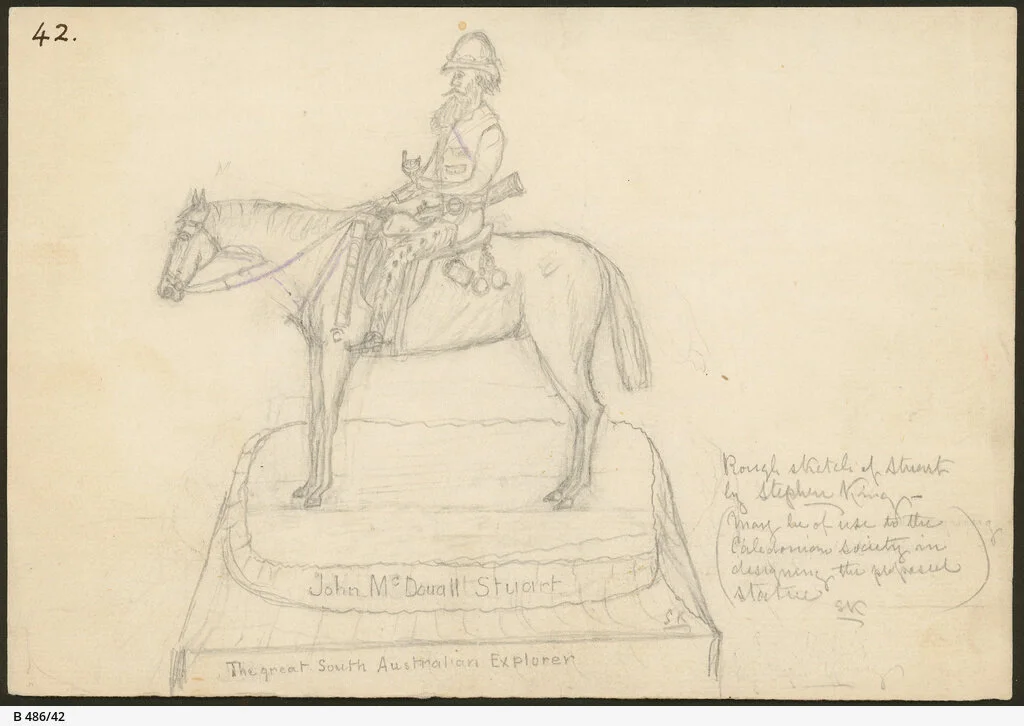 42.
Rough sketch of Stuart
by Stephen King –
(May be of use to the
Caledonian Society in
designing the proposed
statue)
SK
John McDouall Stuart
SK
The great South Australian Explorer
B 486/42